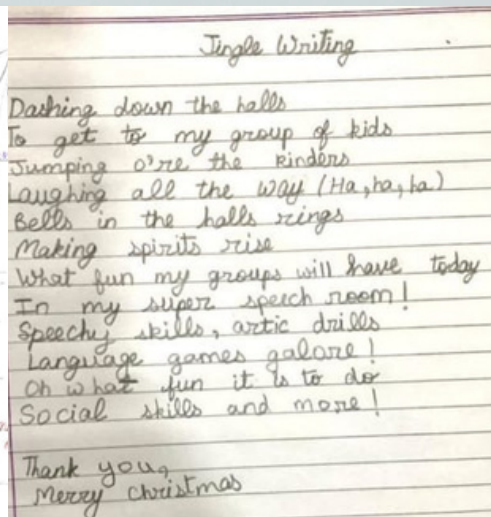 Jingle Writing
Dashing down the halls
To get to my group of kids
Jumping o're the kinders
Laughing all the way (Ha, ha, ha)
Bells in the halls rings
Making spirits rise
What fun my groups will have today
In my super speech room!
Speechy skills, artic drills
Language games galore!
Oh what fun it is to do
Social skills and more!
Thank you,
Merry Christmas